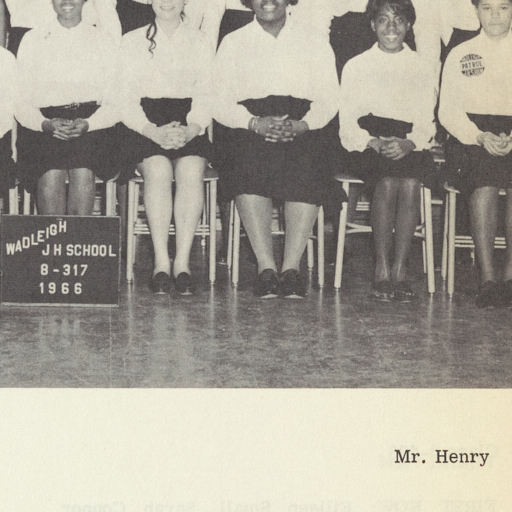 WADLEIGH
J H SCHOOL
8-317
1966
Mr. Henry